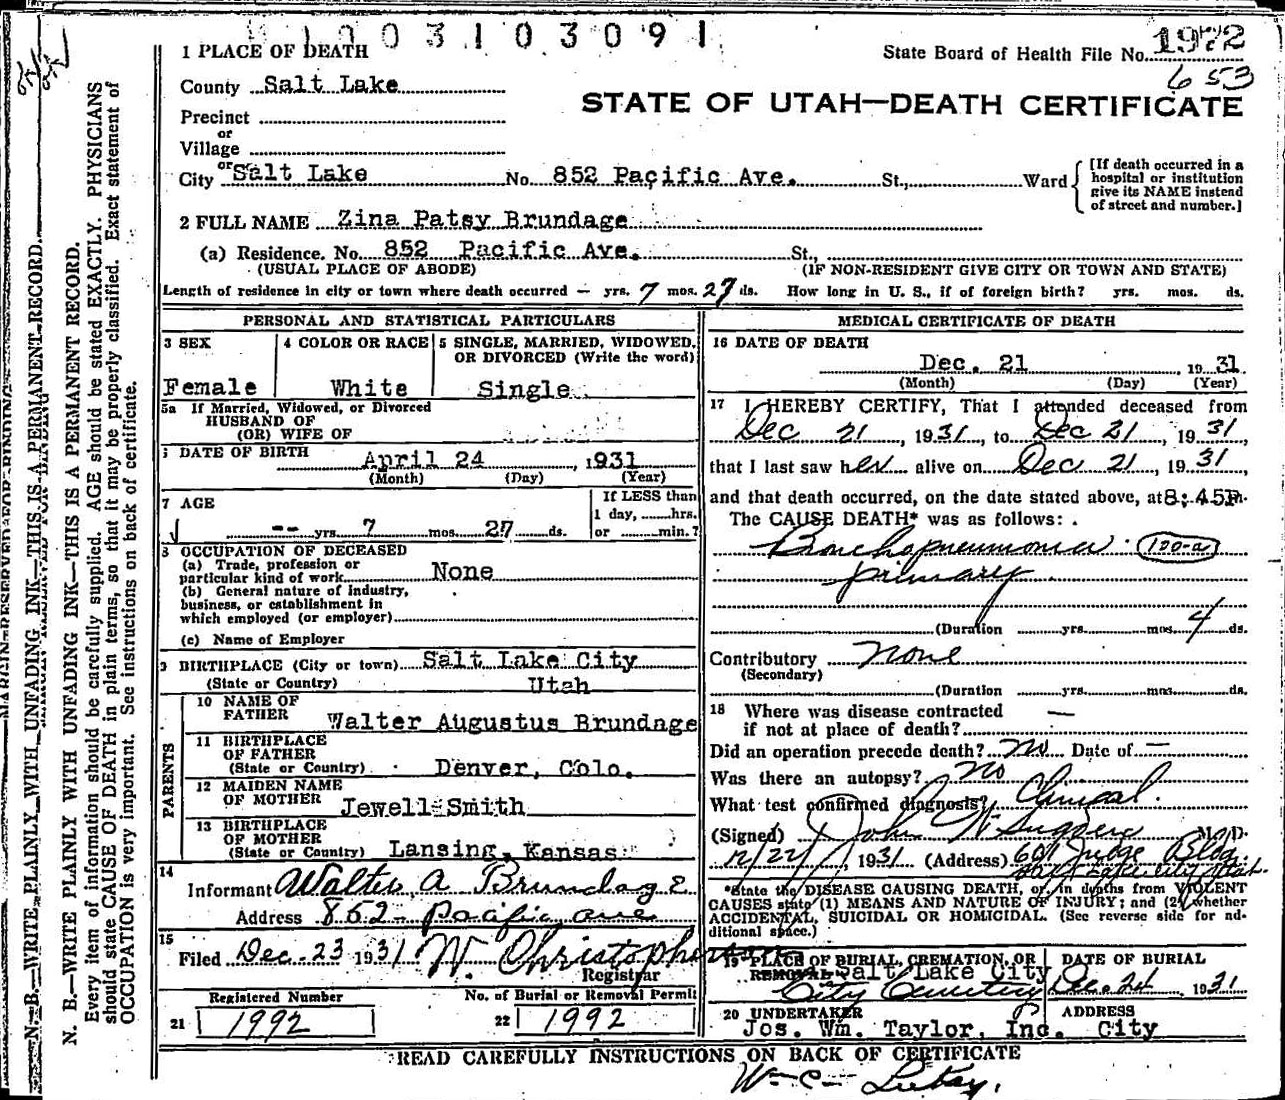 1003103091
1972
653
1 PLACE OF DEATH
State Board of Health File No.
County Salt Lake
STATE OF UTAH—DEATH CERTIFICATE
Precinct
or
Village
or
City Salt Lake No. 852 Pacific Ave. St., Ward
[If death occurred in a hospital or institution give its NAME instead of street and number.]
2 FULL NAME Zina Patsy Brundage
(a) Residence. No. 852 Pacific Ave. St.,
(USUAL PLACE OF ABODE) (IF NON-RESIDENT GIVE CITY OR TOWN AND STATE)
Length of residence in city or town where death occurred — yrs. 7 mos. 27 ds. How long in U. S., if of foreign birth? yrs. mos. ds.
PERSONAL AND STATISTICAL PARTICULARS
3 SEX 4 COLOR OR RACE 5 SINGLE, MARRIED, WIDOWED, OR DIVORCED (Write the word)
Female White Single
5a If Married, Widowed, or Divorced
HUSBAND OF
(OR) WIFE OF
DATE OF BIRTH April 24, 1931
(Month) (Day) (Year)
7 AGE
If LESS than
1 day, hrs.
-- yrs. 7 mos. 27 ds. or min.?
8 OCCUPATION OF DECEASED
(a) Trade, profession or
particular kind of work None
(b) General nature of industry,
business, or establishment in
which employed (or employer)
(c) Name of Employer
9 BIRTHPLACE (City or town) Salt Lake City
(State or Country) Utah
PARENTS
10 NAME OF
FATHER Walter Augustus Brundage
11 BIRTHPLACE
OF FATHER
(State or Country) Denver, Colo.
12 MAIDEN NAME
OF MOTHER Jewell Smith
13 BIRTHPLACE
OF MOTHER
(State or Country) Lansing, Kansas
14
Informant Walter A Brundage
Address 852 Pacific ave
15
Filed Dec. 23 1931 W. Christopherson
Registrar
Registered Number No. of Burial or Removal Permit
21 1992 22 1992
MEDICAL CERTIFICATE OF DEATH
16 DATE OF DEATH
Dec. 21 1931
(Month) (Day) (Year)
17 I HEREBY CERTIFY, That I attended deceased from
Dec 21, 1931, to Dec 21, 1931,
that I last saw her alive on Dec 21, 1931,
and that death occurred, on the date stated above, at 8:45P m.
The CAUSE DEATH* was as follows:
Bronchopneumonia 120-a
primary
(Duration yrs. mos. 4 ds.
Contributory None
(Secondary)
(Duration yrs. mos. ds.
18 Where was disease contracted
if not at place of death? —
Did an operation precede death? no Date of —
Was there an autopsy? no
What test confirmed diagnosis? Clinical.
(Signed) John W M.D.
12/22/, 1931 (Address) 601 Judge Bldg.
Salt Lake City Utah.
*State the DISEASE CAUSING DEATH, or, in deaths from VIOLENT
CAUSES state (1) MEANS AND NATURE OF INJURY; and (2) whether
ACCIDENTAL, SUICIDAL OR HOMICIDAL. (See reverse side for ad-
ditional space.)
19 PLACE OF BURIAL, CREMATION, OR DATE OF BURIAL
REMOVAL Salt Lake City
City Cemetery Dec. 24 1931
20 UNDERTAKER ADDRESS
Jos. Wm. Taylor, Inc. City
READ CAREFULLY INSTRUCTIONS ON BACK OF CERTIFICATE
Wm C
MARGIN RESERVED FOR BINDING
N. B.—WRITE PLAINLY WITH UNFADING INK—THIS IS A PERMANENT RECORD.
N. B.—WRITE PLAINLY WITH UNFADING INK—THIS IS A PERMANENT RECORD.
Every item of information should be carefully supplied. AGE should be stated EXACTLY. PHYSICIANS
should state CAUSE OF DEATH in plain terms, so that it may be properly classified. Exact statement of
OCCUPATION is very important. See instructions on back of certificate.